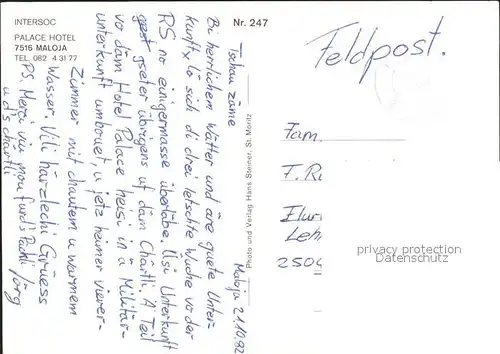 INTERSOC
PALACE HOTEL
7516 MALOJA
TEL. 082 4 31 77
Nr. 247
Maloja 21.10.92
Tschau zäme
Bi herrlichem Wätter und äre guete Unter-
kunft lö sich di drei letschte Wuche vo der
RS no einigermasse übertäbe. Üsi Unterkunft
gseter übrigens uf däm Chärtli. A Teil
vo däm Hotel Palace heisi in ä Militär-
unterkunft umbouet, u jetz heimer vierer-
Zimmer mit chautem u warmem
Wasser. Vili härzlechi Grüess
Jörg
PS. Merci viu mou für ds Päckli
u d's chärtli
Photo und Verlag Hans Steiner, St. Moritz
Feldpost.
Fam.
F. R
Flur
Leh
2504
privacy protection
oldthing.com